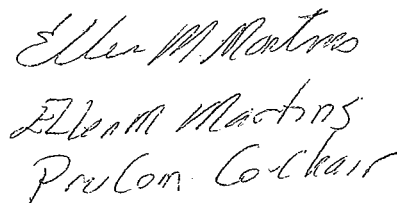 Ellen M. Martins
Ellen M Martins
PruCom Co-Chair